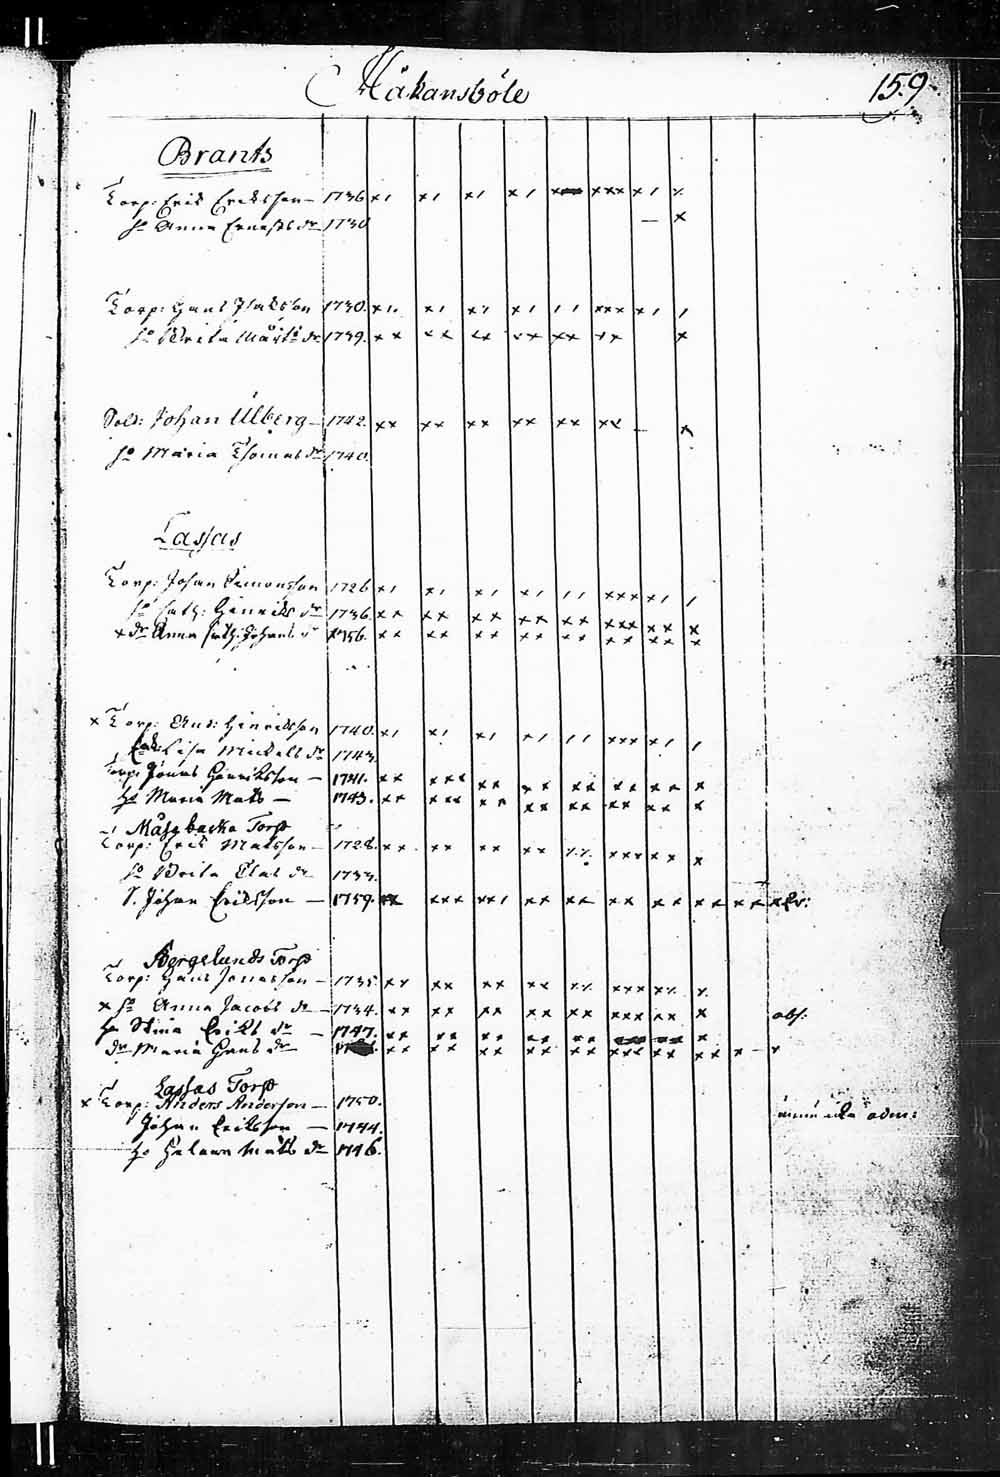 Håkansböle 159.
Brants
Torp: Eric Ericsson — 1736 x ı x ı x ı x ı x xxx x ı x
h:o Anna Ernests dr 1730 — x
Torp: Hans Isaksson 1730. x ı x ı x ı x ı ı ı xxx x ı ı
h:o Brita Mårts dr 1739. xx xx xx xx xx xx x
Sold: Johan Ulberg — 1742. xx xx xx xx xx xx — x
h:o Maria Thomas dr 1740.
Lassas
Torp: Johan Simonsson 1726 x ı x ı x ı x ı ı ı xxx x ı ı
h:o Cath: Henriks dr 1736. xx xx xx xx xx xxx xx x
x dr Anna Cath: Johans dr 1756. xx xx xx xx xx xx xx x
x Torp: And: Henriksson 1740. x ı x ı x ı x ı ı ı xxx x ı ı
Lisa Mickels dr 1743.
Torp: Jonas Henriksson — 1741. xx xxx xx xx xx xx xx x
ho Maria Mats — 1743. xx xxx xx xx xx xx xx x
Måsabacka Torp
Torp: Eric Matsson — 1728. xx xx xx xx xx xxx xx x
h:o Brita Clas dr 1733.
S. Johan Ericsson — 1759. xx xxx xx ı xx xx xx xx xx xx
Bergelunds Torp
Torp: Hans Jonasson — 1735. xx xx xx xx xx xxx xx x
x h:o Anna Jacobs dr — 1734. xx xx xx xx xx xxx xx x obs:
ho Stina Ericks dr — 1747. xx xx xx xx xx x
dr Maria Hans dr xx xx xx xx xx xxx xx xx x — x
Lassas Torp
x Torp: Anders Anderson — 1750. ännu icke adm:
Johan Ericsson — 1744.
ho Helena Mats dr 1746.